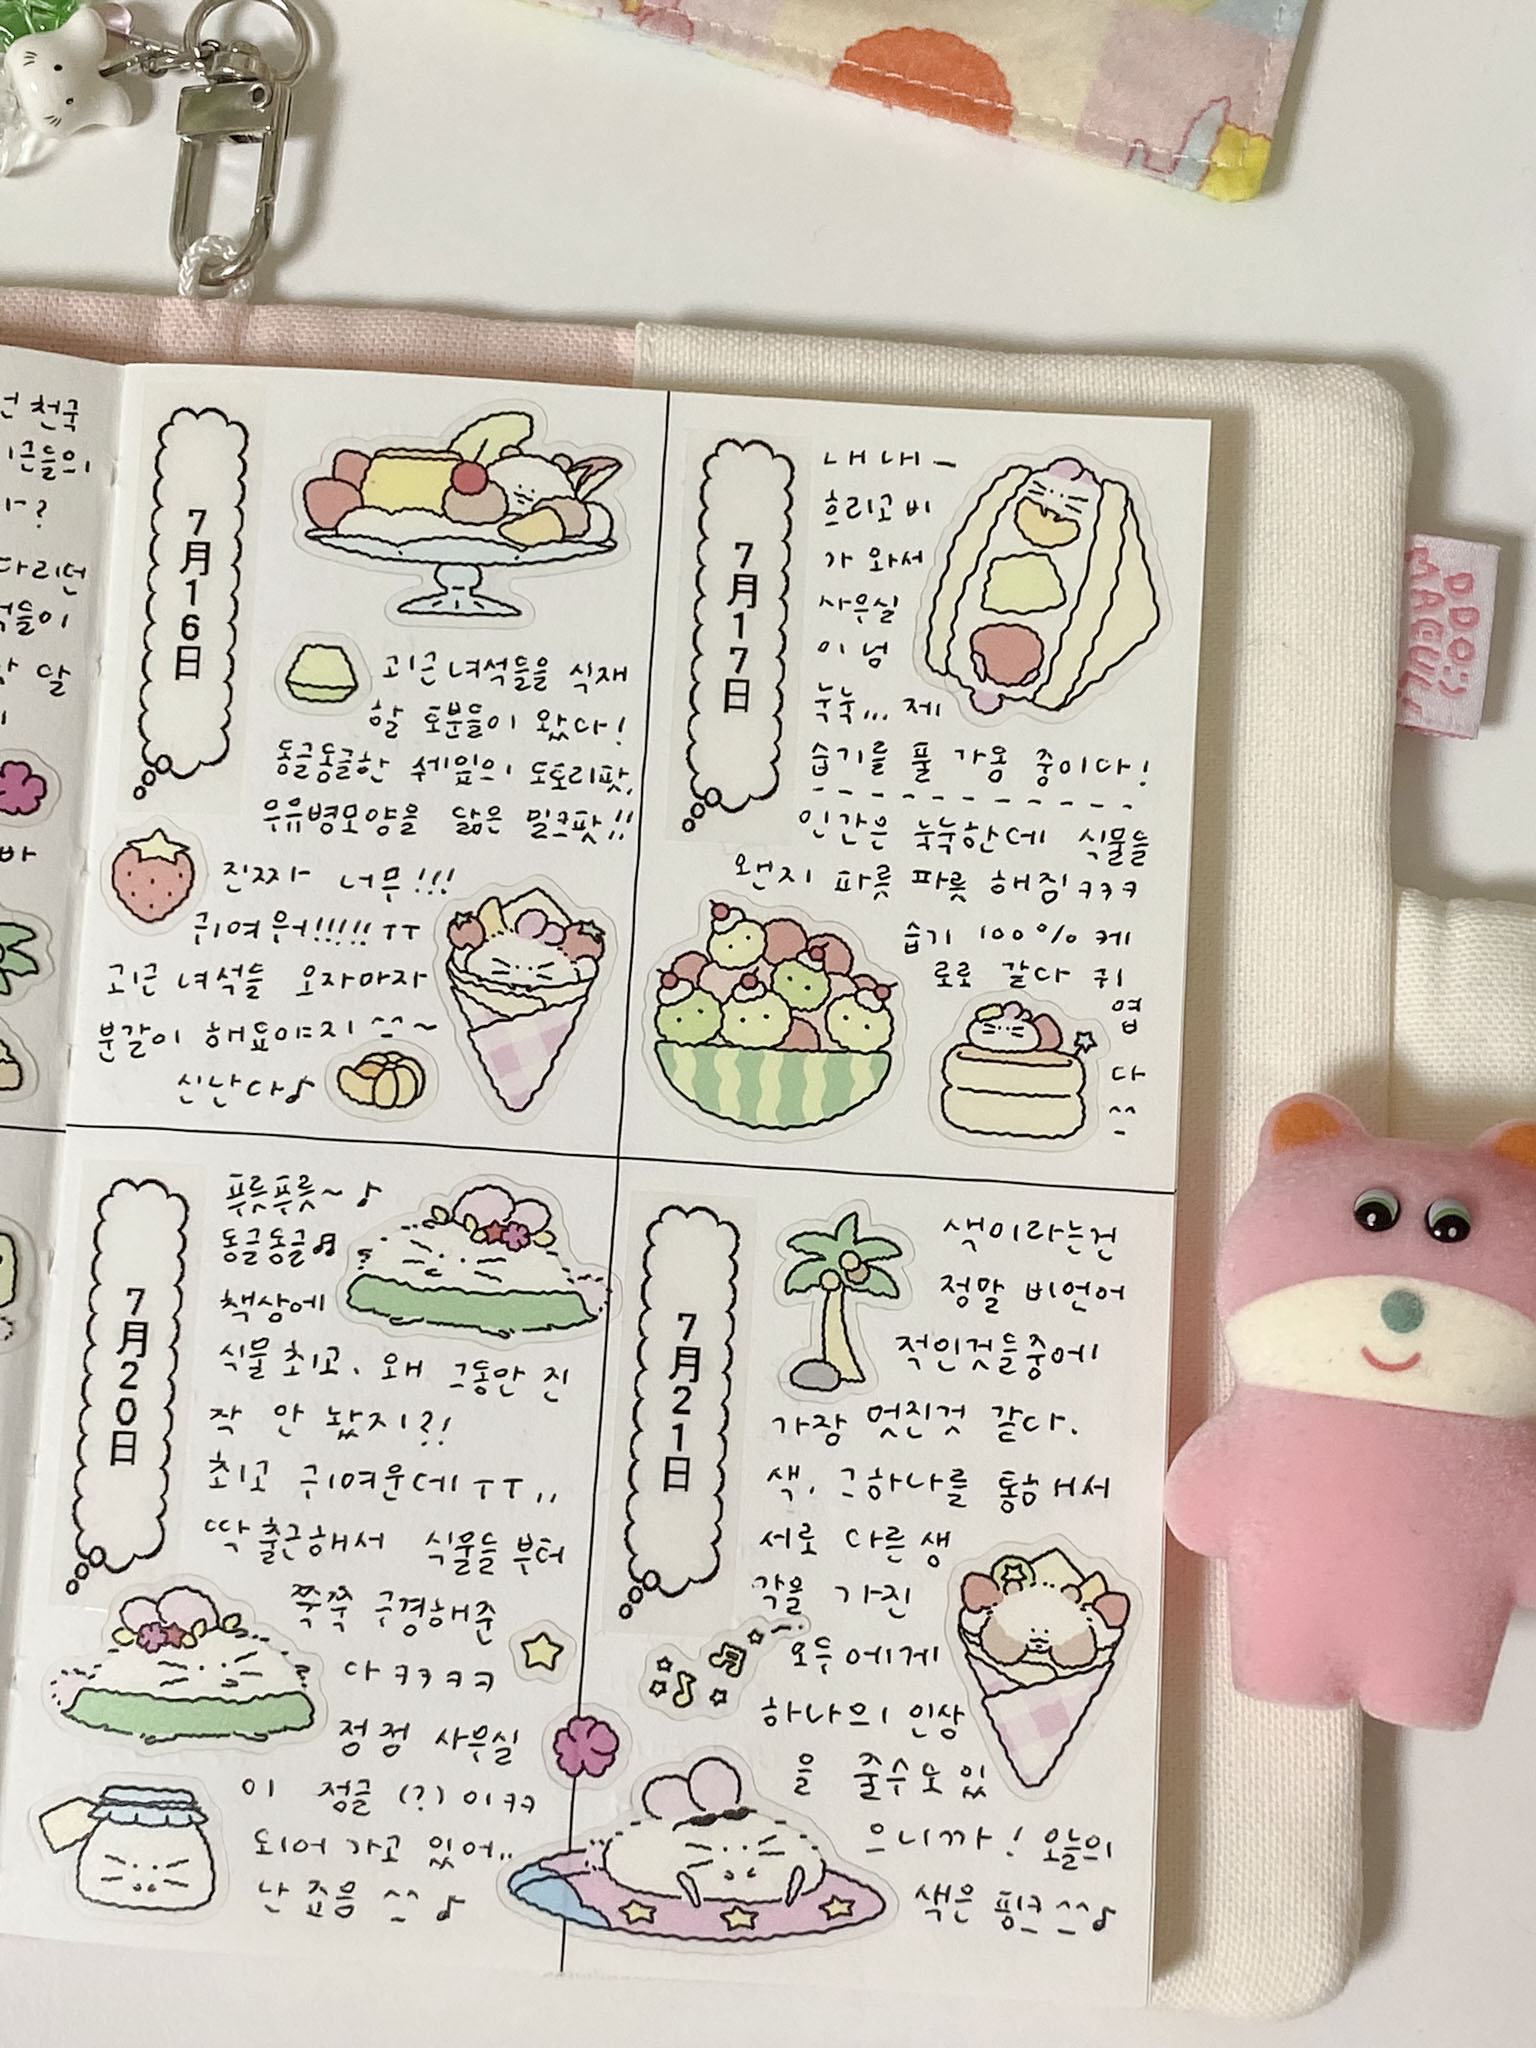 건 천국
7月16日
괴근 녀석들을 식재
할 토분들이 왔다!
동글동글한 쉐입의 도토리팟,
우유병모양을 닮은 밀크팟!!
진짜 너무!!!
귀여워!!!!!! ㅠㅠ
괴근 녀석들 오자마자
분갈이 해줘야지 ^_^~
신난다♪
7月17日
내내 -
흐리고 비
가 와서
사무실
이 넘
눅눅... 제
습기를 풀 가동 중이다!
인간은 눅눅한데 식물들
왠지 파릇 파릇 해짐 ㅋㅋㅋ
습기 100% 케
로로 같다 귀
엽
다
^_^
7月20日
푸릇푸릇~♪
동글동글♬
책상에
식물 최고. 왜 그동안 진
작 안 놨지?!
최고 귀여운데 ㅠㅠ..
딱 출근해서 식물들 부터
쭉쭉 구경해준
다 ㅋㅋㅋㅋ
점점 사무실
이 정글(?)이ㅋㅋ
되어 가고 있어..
난 좋음 ^_^ ♪
7月21日
색이라는건
정말 비언어
적인것들중에
가장 멋진것 같다.
색, 그하나를 통해서
서로 다른 생
각을 가진
모두에게
하나의 인상
을 줄수도 있
으니까! 오늘의
색은 핑크 ^_^♪
DDO
MAEUL